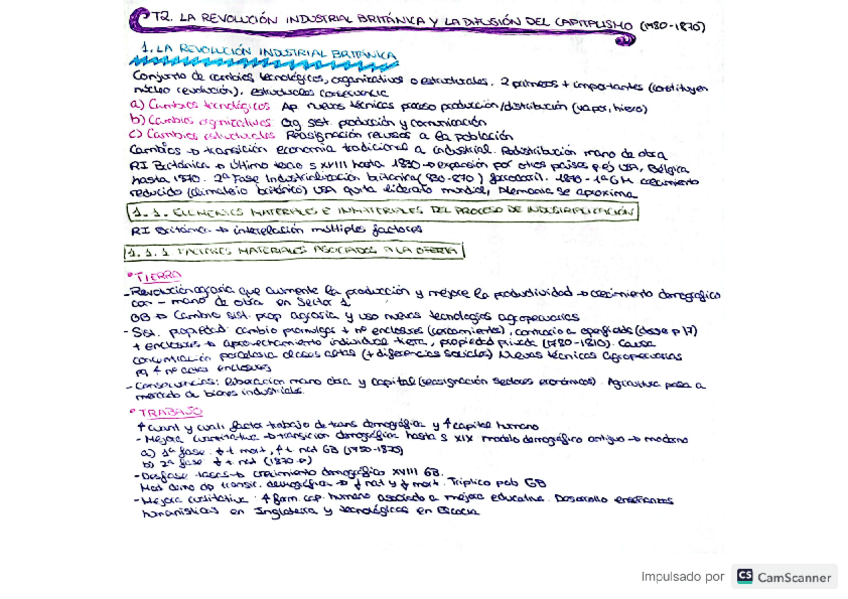 T2. LA REVOLUCIÓN INDUSTRIAL BRITÁNICA Y LA DIFUSIÓN DEL CAPITALISMO (1780-1870)
1. LA REVOLUCIÓN INDUSTRIAL BRITÁNICA
Conjunto de cambios tecnológicos, organizativos o estructurales. 2 primeros + importantes (constituyen
núcleo revolución), estructurales consecuencia
a) Cambios tecnológicos Ap. nuevas técnicas proceso producción/distribución (vapor, hierro)
b) Cambios organizativos Org. sist. producción y comunicación
c) Cambios estructurales Reasignación recursos a la población
Cambios → transición economía tradicional a industrial. Redistribución mano de obra
RI Británica → último tercio s XVIII hasta 1830 → expansión por otros países p.ej USA, Bélgica
hasta 1870. 2ª Fase Industrialización británica (830-870) ferrocarril. 1870-1ª GM crecimiento
reducido (climaterio británico) USA quita liderato mundial, Alemania se aproxima
1.1. ELEMENTOS MATERIALES E INMATERIALES DEL PROCESO DE INDUSTRIALIZACIÓN
RI Británica → interrelación múltiples factores
1.1.1 FACTORES MATERIALES ASOCIADOS A LA OFERTA
• TIERRA
- Revolución agraria que aumente la producción y mejore la productividad → crecimiento demográfico
con - mano de obra en Sector 1
GB → Cambio sist. prop agraria y uso nuevas tecnologías agropecuarias
- Sist. propiedad: cambio promulgas + nº enclosures (cercamientos), contrario a openfields (clase p 17)
+ enclosures → aprovechamiento individual tierra, propiedad privada (1780-1810). Causa
concentración parcelaria clases altas (+ diferencias sociales) Nuevas técnicas Agropecuarias
pq ↑ nº actas enclosures
- Consecuencias: liberación mano obra y capital (reasignación sectores económicos). Agricultura pasa a
mercado de bienes industriales.
• TRABAJO
↑ cuant y cuali factor trabajo de trans demográfica y ↑ capital humano
- Mejora cuantitativa → transición demográfica hasta s XIX modelo demográfico antiguo → moderno
a) 1ª fase ↓ t mort, ↑ t nat GB (1750-1870)
b) 2ª fase ↓ t nat (1870 →)
- Desfase tasas → crecimiento demográfico XVIII GB.
transic. demográfica → ↓ nat y ↓ mort. Triplico pob GB
- Mejora cualitativa: ↑ form. cap. humano asociado a mejora educativa. Desarrollo enseñanzas
humanísticas en Inglaterra y tecnológicas en Escocia
Impulsado por CS CamScanner